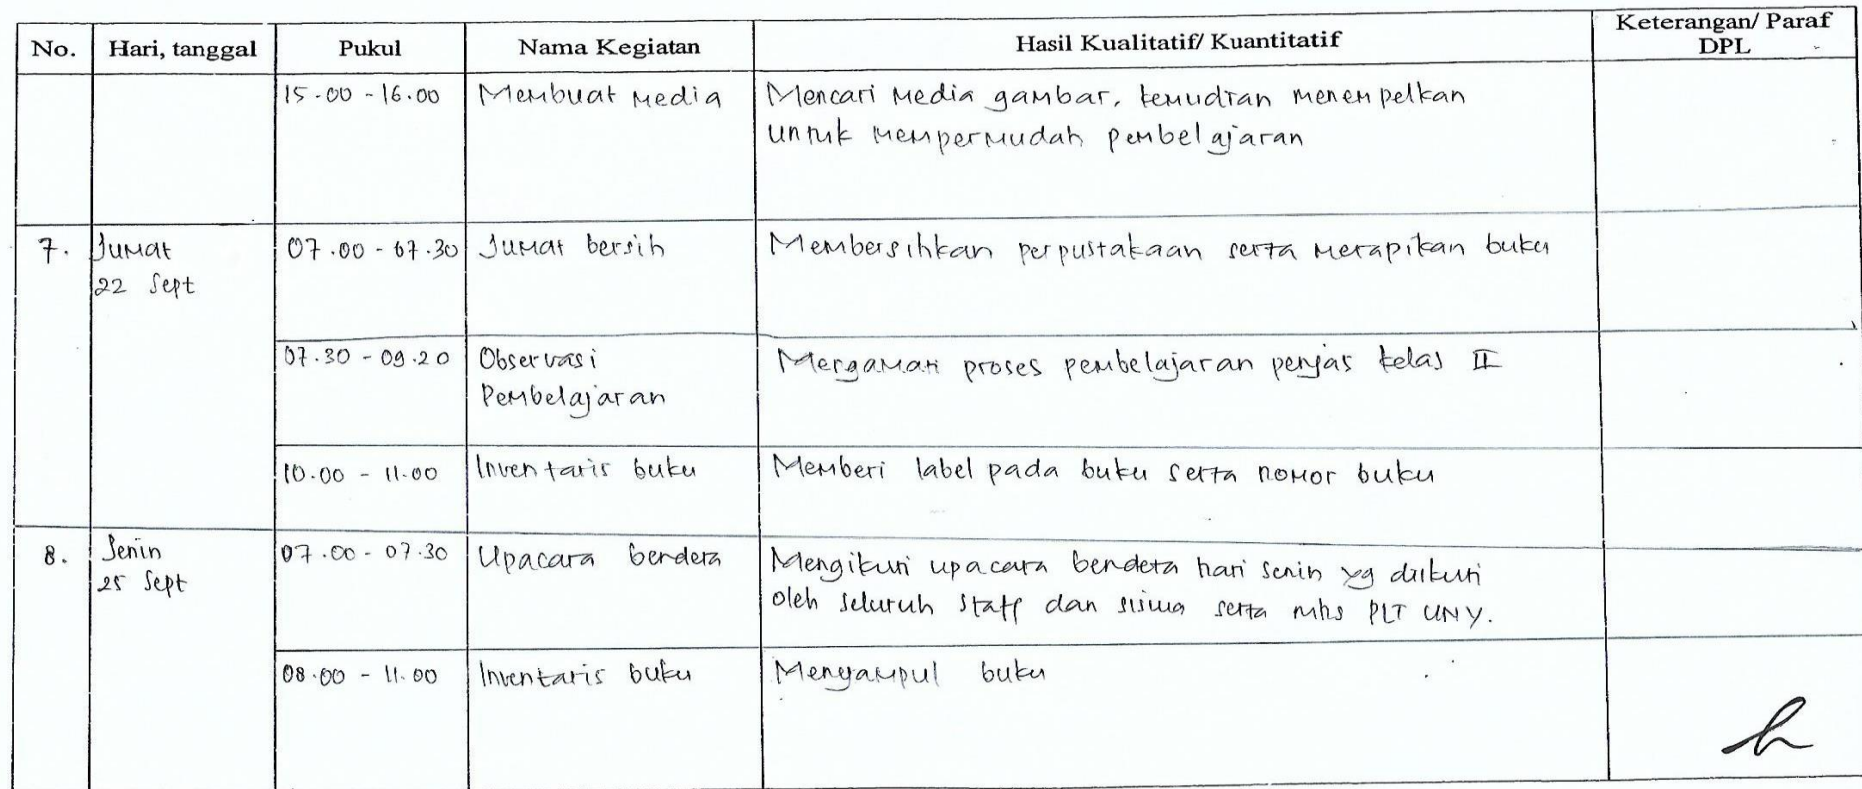 No. Hari, tanggal Pukul Nama Kegiatan Hasil Kualitatif/ Kuantitatif Keterangan/ Paraf DPL
15.00 - 16.00 Membuat Media Mencari Media gambar, kemudian menempelkan
untuk mempermudah pembelajaran
7. Jumat 07.00 - 07.30 Jumat bersih Membersihkan perpustakaan serta merapikan buku
22 Sept
07.30 - 09.20 Observasi Mengamati proses pembelajaran penjas kelas II
Pembelajaran
10.00 - 11.00 Inventaris buku Memberi label pada buku serta nomor buku
8. Senin 07.00 - 07.30 Upacara bendera Mengikuti upacara bendera hari senin yg diikuti
25 Sept oleh seluruh staff dan siswa serta mhs PLT UNY.
08.00 - 11.00 Inventaris buku Menyampul buku